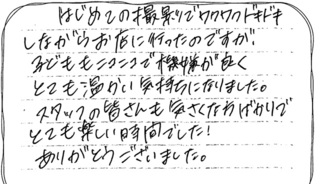 はじめての撮影でワクワクドキドキ
しながらお店に行ったのですが、
子どももニコニコで機嫌が良く
とても温かい気持ちになりました。
スタッフの皆さんも気さくな方ばかりで
とても楽しい時間でした!
ありがとうございました。